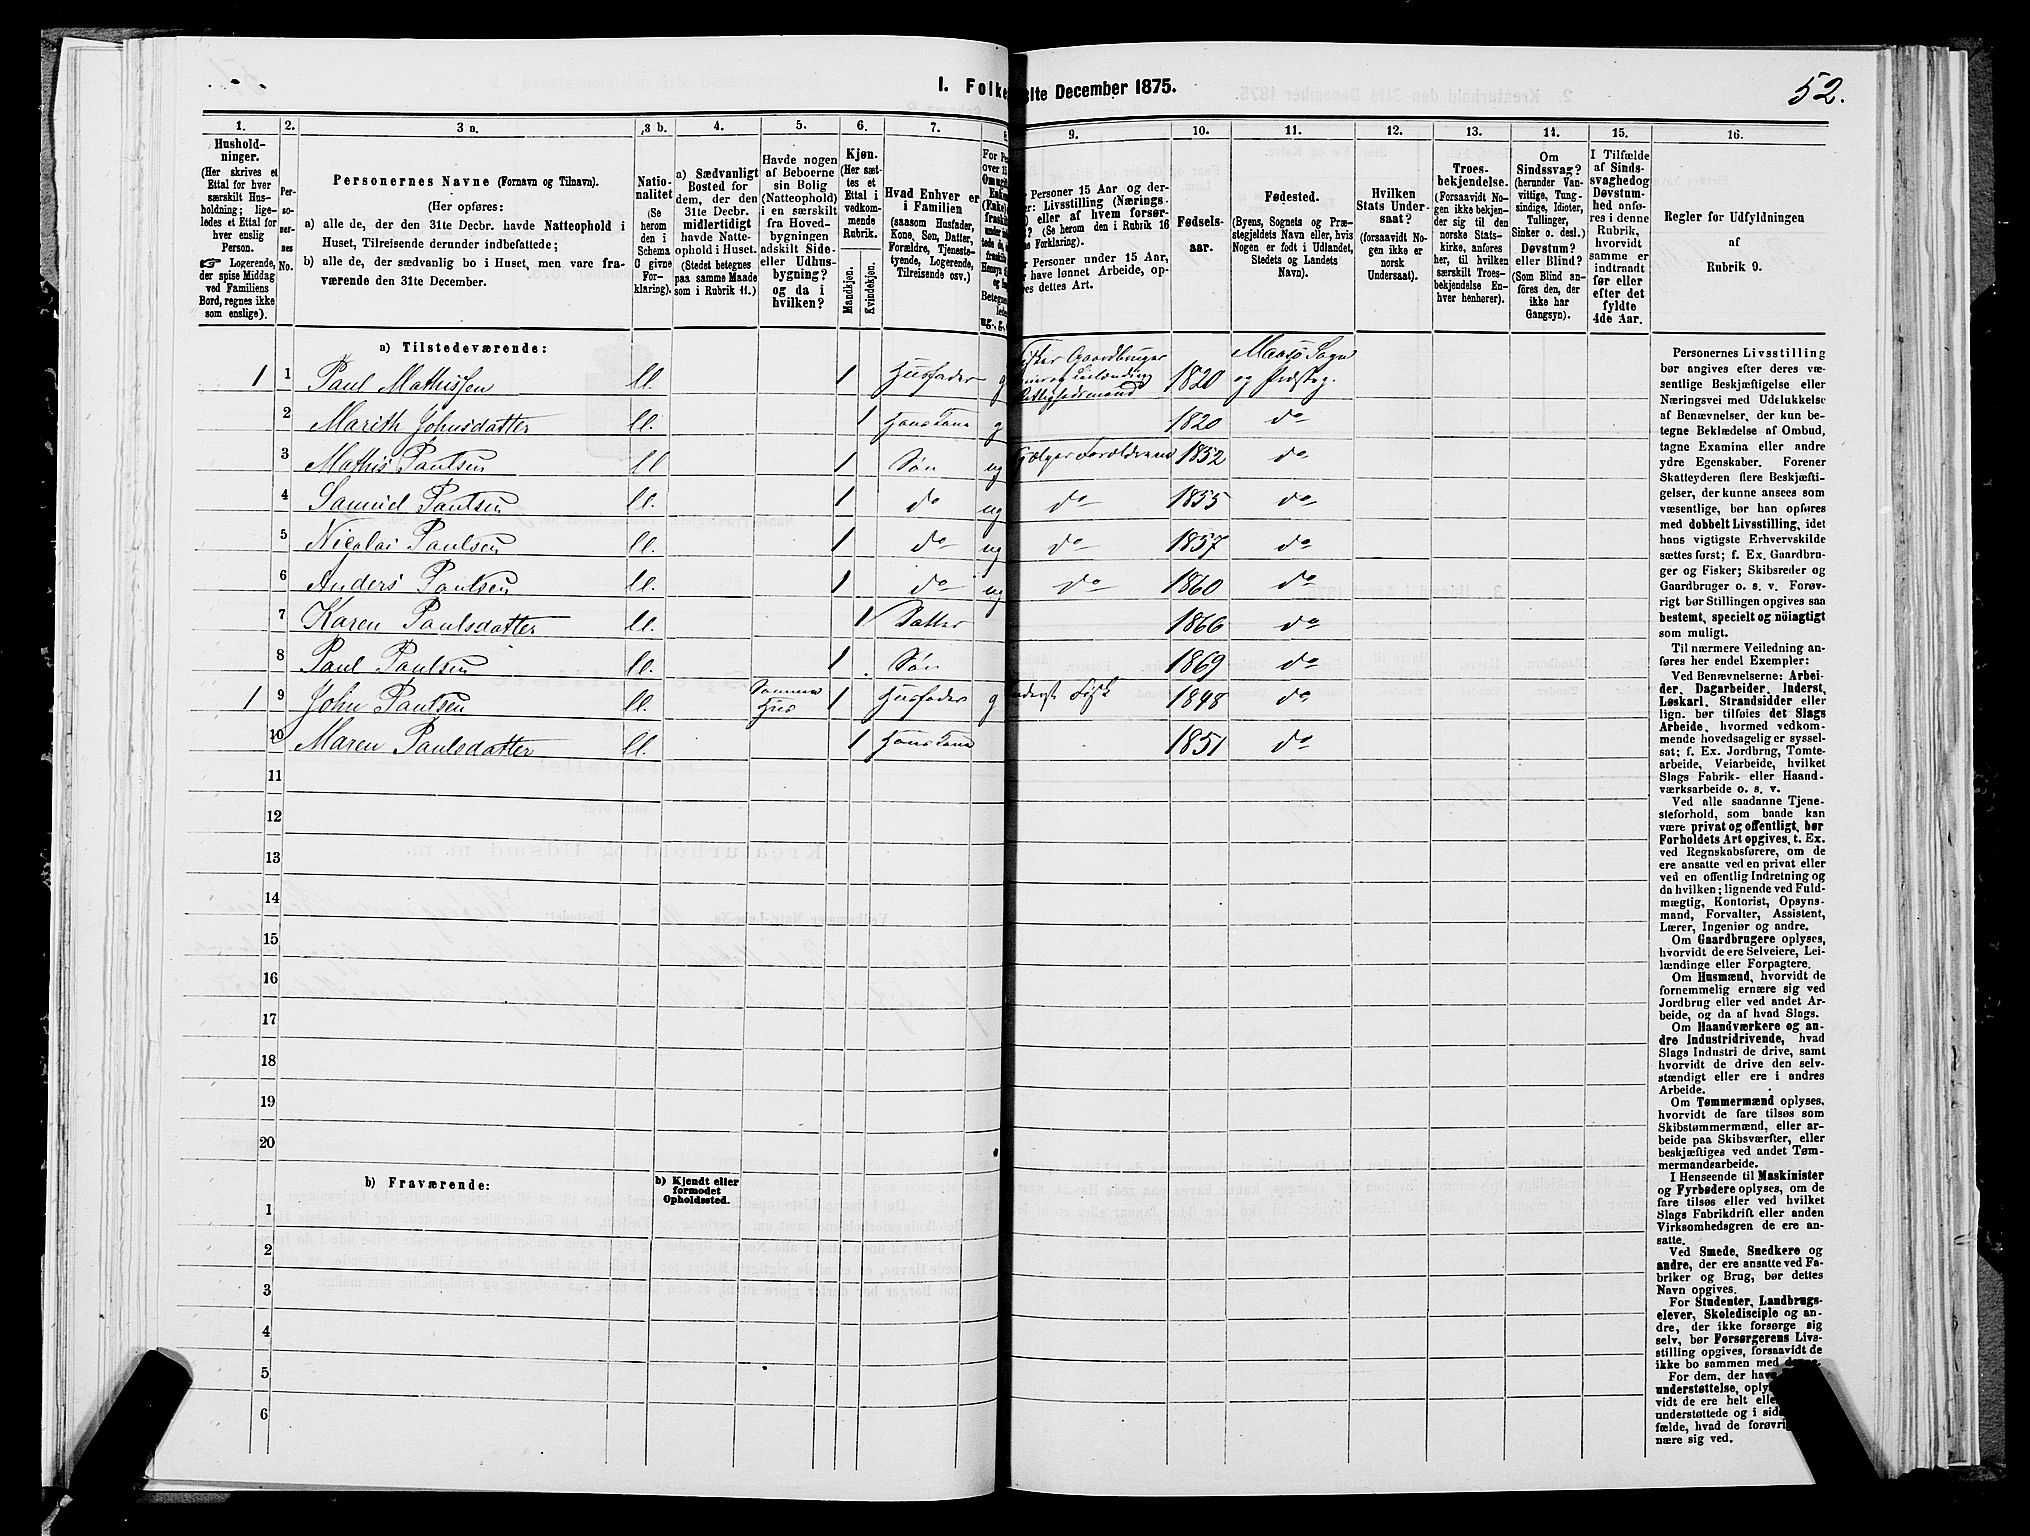 1. Folke
lte December 1875.
52.
1. 2. 3 a. 3 b. 4. 5. 6. 7. 8. 9. 10. 11. 12. 13. 14. 15. 16.
Hushold-
ninger.
(Her skrives et
Ettal for hver
særskilt Hus-
holdning; lige-
ledes et Ettal for
hver enslig
Person.
Logerende,
der spise Middag
ved Familiens
Bord, regnes ikke
som enslige).
Per-
so-
ner-
nes
No.
Personernes Navne (Fornavn og Tilnavn).
(Her opføres:
a) alle de, der den 31te Decbr. havde Natteophold i
Huset, Tilreisende derunder indbefattede;
b) alle de, der sædvanlig bo i Huset, men vare fra-
værende den 31te December.
Natio-
nalitet
(Se
herom
den i
Schema
0 givne
For-
klaring).
a) Sædvanligt
Bosted for
dem, der den
31te Decbr.
midlertidigt
havde Natte-
ophold i Huset.
(Stedet betegnes
paa samme Maade
som i Rubrik 11.)
Havde nogen
af Beboerne
sin Bolig
(Natteophold)
i en særskilt
fra Hoved-
bygningen
adskilt Side-
eller Udhus-
bygning?
og da i
hvilken?
Kjøn.
(Her sæt-
tes et
Ettal i
vedkom-
mende
Rubrik.
Mandkjøn.
Kvindekjøn.
Hvad Enhver er
i Familien
(saasom Husfader,
Kone, Søn, Datter,
Forældre, Tjeneste-
tyende, Logerende,
Tilreisende osv.)
Personer 15 Aar og der-
Livsstilling (Nærings-
eller af hvem forsør-
(Se herom den i Rubrik 16
Forklaring).
Personer under 15 Aar,
have lønnet Arbeide, op-
dettes Art.
Fødsels-
aar.
Fødested.
(Byens, Sognets og Præ-
stegjeldets Navn eller, hvis
Nogen er født i Udlandet,
Stedets og Landets
Navn).
Hvilken
Stats Under-
saat?
(forsaavidt No-
gen ikke er
norsk
Undersaat).
Troes-
bekjendelse.
(Forsaavidt No-
gen ikke bekjen-
der sig til den
norske Stats-
kirke, anføres
her, til hvilken
særskilt Troes-
bekjendelse En-
hver henhører).
Om
Sindssvag?
(herunder Van-
vittige, Tung-
sindige, Idioter,
Tullinger,
Sinker o. desl.)
Døvstum?
eller Blind?
(Som Blind an-
føres den, der
ikke har
Gangsyn).
I Tilfælde
af Sinds-
svaghed og
Døvstum-
hed anfø-
res i denne
Rubrik,
hvorvidt
samme er
indtraadt
før eller
efter det
fyldte
4de Aar.
Regler for Udfyldningen
af
Rubrik 9.
a) Tilstedeværende:
1 1 Paul Mathissen ll. 1 Husfader g Fisker Gaardbruger 1820 Maasø Sogn
og Presteg.
2 Marith Johnsdatter ll. 1 g 1820 do
3 Mathis Paulsen ll 1 Søn ug 1852 do
4 Samuel Paulsen ll. 1 do ug do 1855 do
5 Nicolai Paulsen ll. 1 do ug do 1857 do
6 Anders Paulsen ll. 1 do ug do 1860 do
7 Karen Paulsdatter ll. 1 Datter 1866 do
8 Paul Paulsen ll. 1 Søn 1869 do
1 9 John Paulsen ll. Samme
Hus 1 Husfader g Fisk 1848 do
10 Maren Paulsdatter ll. 1 1851 do
11
12
13
14
15
16
17
18
19
20
b) Fraværende:
b) Kjendt eller
formodet
Opholdssted.
1
2
3
4
5
6
Personernes Livsstilling
bør angives efter deres væ-
sentlige Beskjæftigelse eller
Næringsvei med Udelukkelse
af Benævnelser, der kun be-
tegne Beklædelse af Ombud,
tagne Examina eller andre
ydre Egenskaber. Forener
Skatteyderen flere Beskjæfti-
gelser, der kunne ansees som
væsentlige, bør han opføres
med dobbelt Livsstilling, idet
hans vigtigste Erhvervskilde
sættes først; f. Ex. Gaardbru-
ger og Fisker; Skibsreder og
Gaardbruger o. s. v. Forøv-
rigt bør Stillingen opgives saa
bestemt, specielt og nöiagtigt
som muligt.
Til nærmere Veiledning an-
føres her endel Exempler:
Ved Benævnelserne: Arbei-
der, Dagarbeider, Inderst,
Løskarl, Strandsidder eller
lign. bør tilføies det Slags
Arbeide, hvormed vedkom-
mende hovedsagelig er syssel-
sat; f. Ex. Jordbrug, Tomte-
arbeide, Veiarbeide, hvilket
Slags Fabrik- eller Haand-
værksarbeide o. s. v.
Ved alle saadanne Tjene-
steforhold, som baade kan
være privat og offentligt, bør
Forholdets Art opgives, t. Ex.
ved Regnskabsførere, om de
ere ansatte ved en privat eller
ved en offentlig Indretning og
da hvilken; lignende ved Fuld-
mægtig, Kontorist, Opsyns-
mand, Forvalter, Assistent,
Lærer, Ingeniør og andre.
Om Gaardbrugere oplyses,
hvorvidt de ere Selveiere, Lei-
lændinge eller Forpagtere.
Om Husmænd, hvorvidt de
fornemmelig ernære sig ved
Jordbrug eller ved andet Ar-
beide, og da af hvad Slags.
Om Haandværkere og an-
dre Industridrivende, hvad
Slags Industri de drive, samt
hvorvidt de drive den selv-
stændigt eller ere i andres
Arbeide.
Om Tømmermænd oplyses,
hvorvidt de fare tilsøs som
Skibstømmermænd, eller ar-
beide paa Skibsværfter, eller
beskjæftiges ved andet Tøm-
mermandsarbeide.
I Henseende til Maskinister
og Fyrbødere oplyses, om de
fare tilsøs eller ved hvilket
Slags Fabrikdrift eller anden
Virksomhedsgren de ere an-
satte.
Ved Smede, Snedkere og
andre, der ere ansatte ved Fa-
briker og Brug, bør dettes
Navn opgives.
For Studenter, Landbrugs-
elever, Skoledisciple og an-
dre, der ikke forsørge sig
selv, bør Forsørgerens Livs-
stilling opgives, forsaavidt de
ikke bo sammen med
For dem, der have
understøttelse,
vidt de ere helt
understøttede og i
fælde, hvad de
nære sig ved.